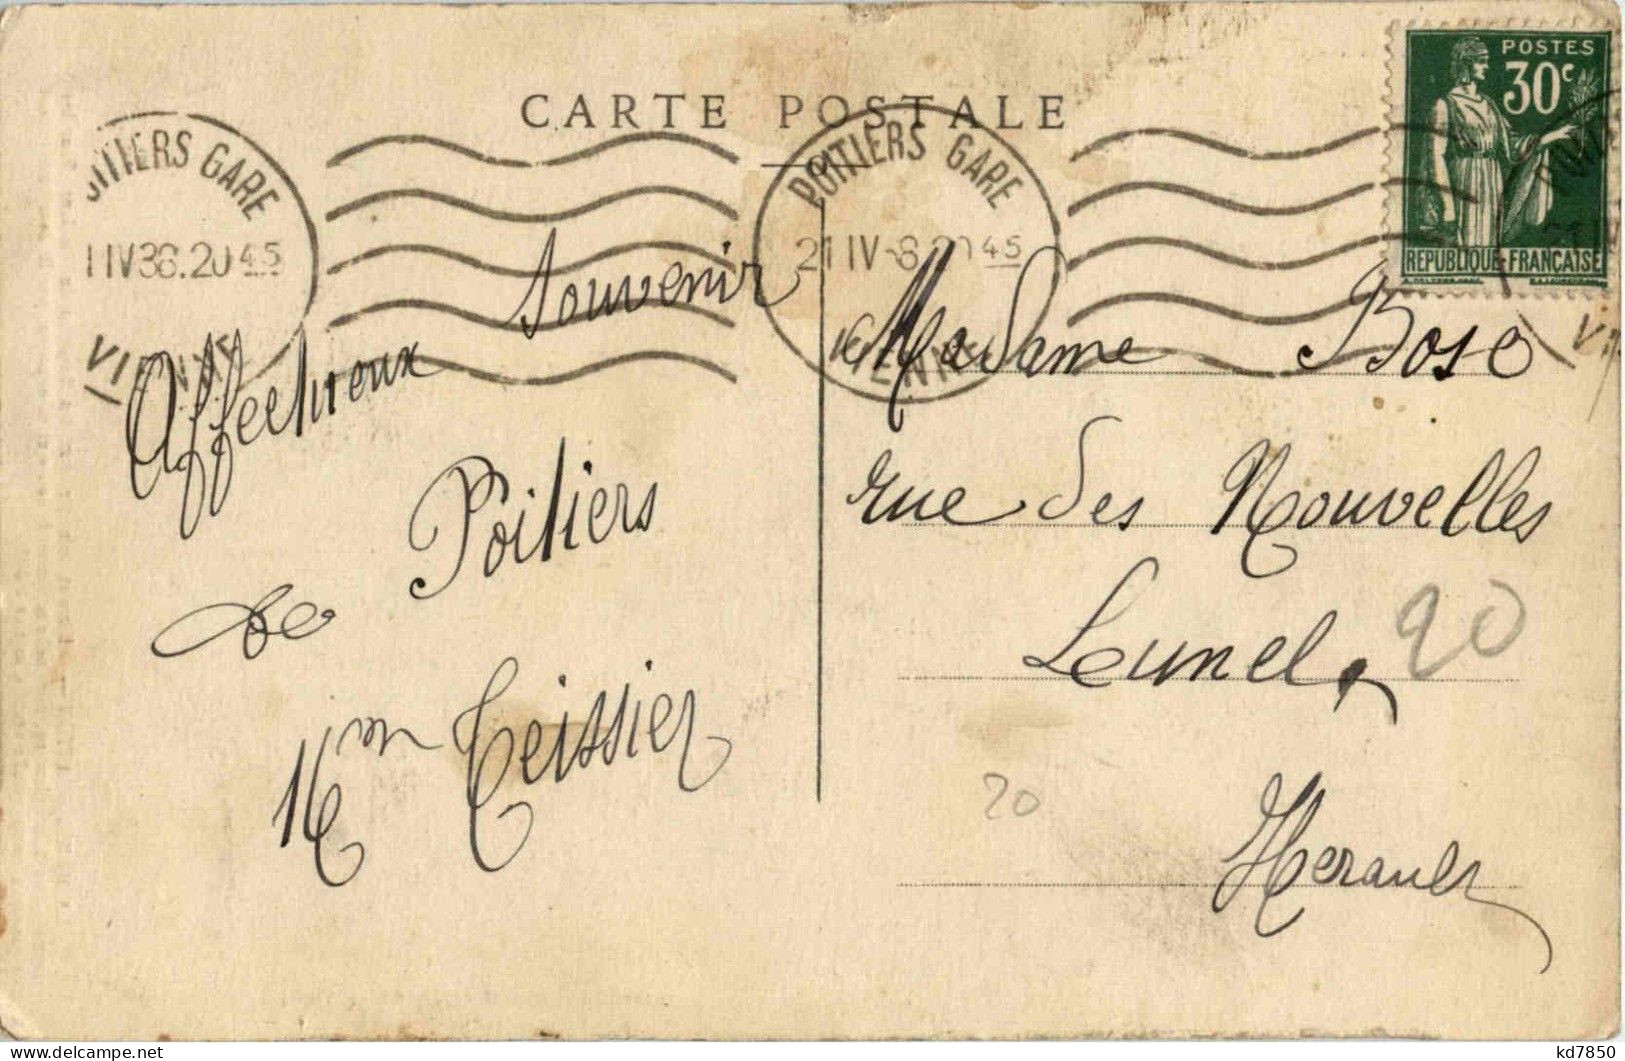 CARTE POSTALE
POSTES
30c
REPUBLIQUE FRANÇAISE
POITIERS GARE
21 IV 38.20 45
VIENNE
OITIERS GARE
1 IV 38.20 45
Affectueux Souvenir
de Poitiers
Mme Teissier
Madame Bosc
rue des Nouvelles
Lunel,
Herault
20
20
delcampe.net
kd7850